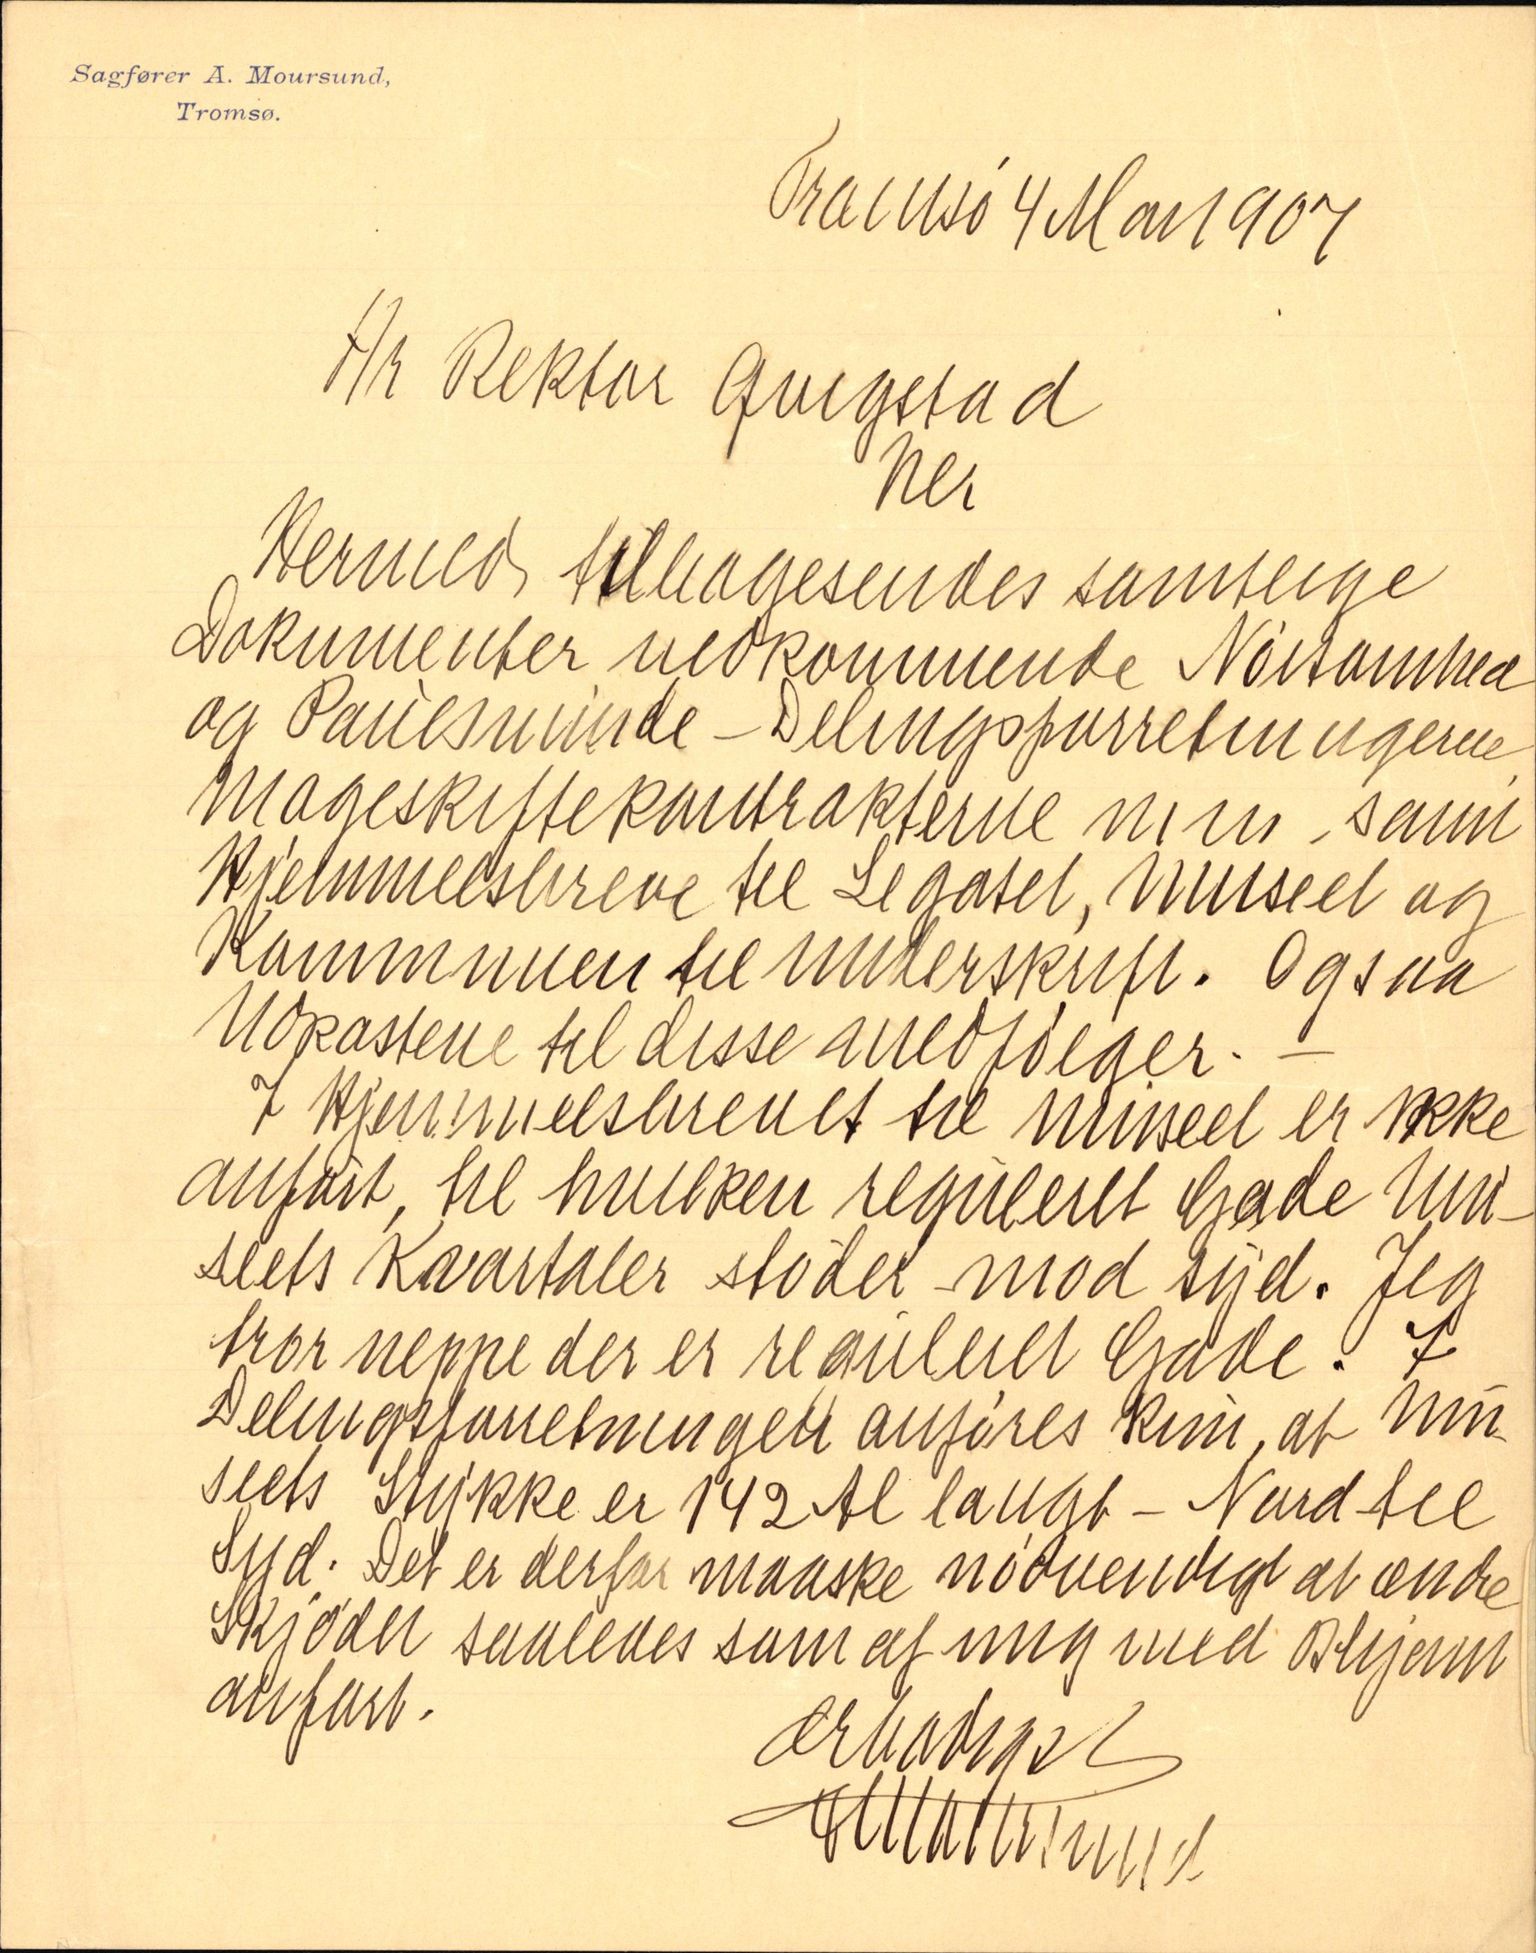 Sagfører A. Moursund,
Tromsø.
Tromsö 4 Mar 1907
Hr Rektor Qvigstad
Her
Hermed tilbagesendes samtlige
Dokumenter vedkommende Nöisomhed
og Paulsminde – Delingsforretningerne,
Mageskiftekontrakterne m m, samt
Hjemmelsbreve til Legatet, Museet og
Kommunen til Underskrift. Ogsaa
Udkastene til disse medfölger. –
I Hjemmelsbrevet til Museet er ikke
anfört, til hvilken reguleret Gade Mu-
seets Kvartaler stöder mod syd. Jeg
tror neppe der er reguleret Gade. I
Delingsforretningen anföres kun, at Mu-
seets Stykke er 142 al langt – Nord til
Syd. Det er derfor maaske nödvendigt at ændre
Skjödet saaledes som af mig med Blyant
anfört.
Ærbödigst
A Moursund